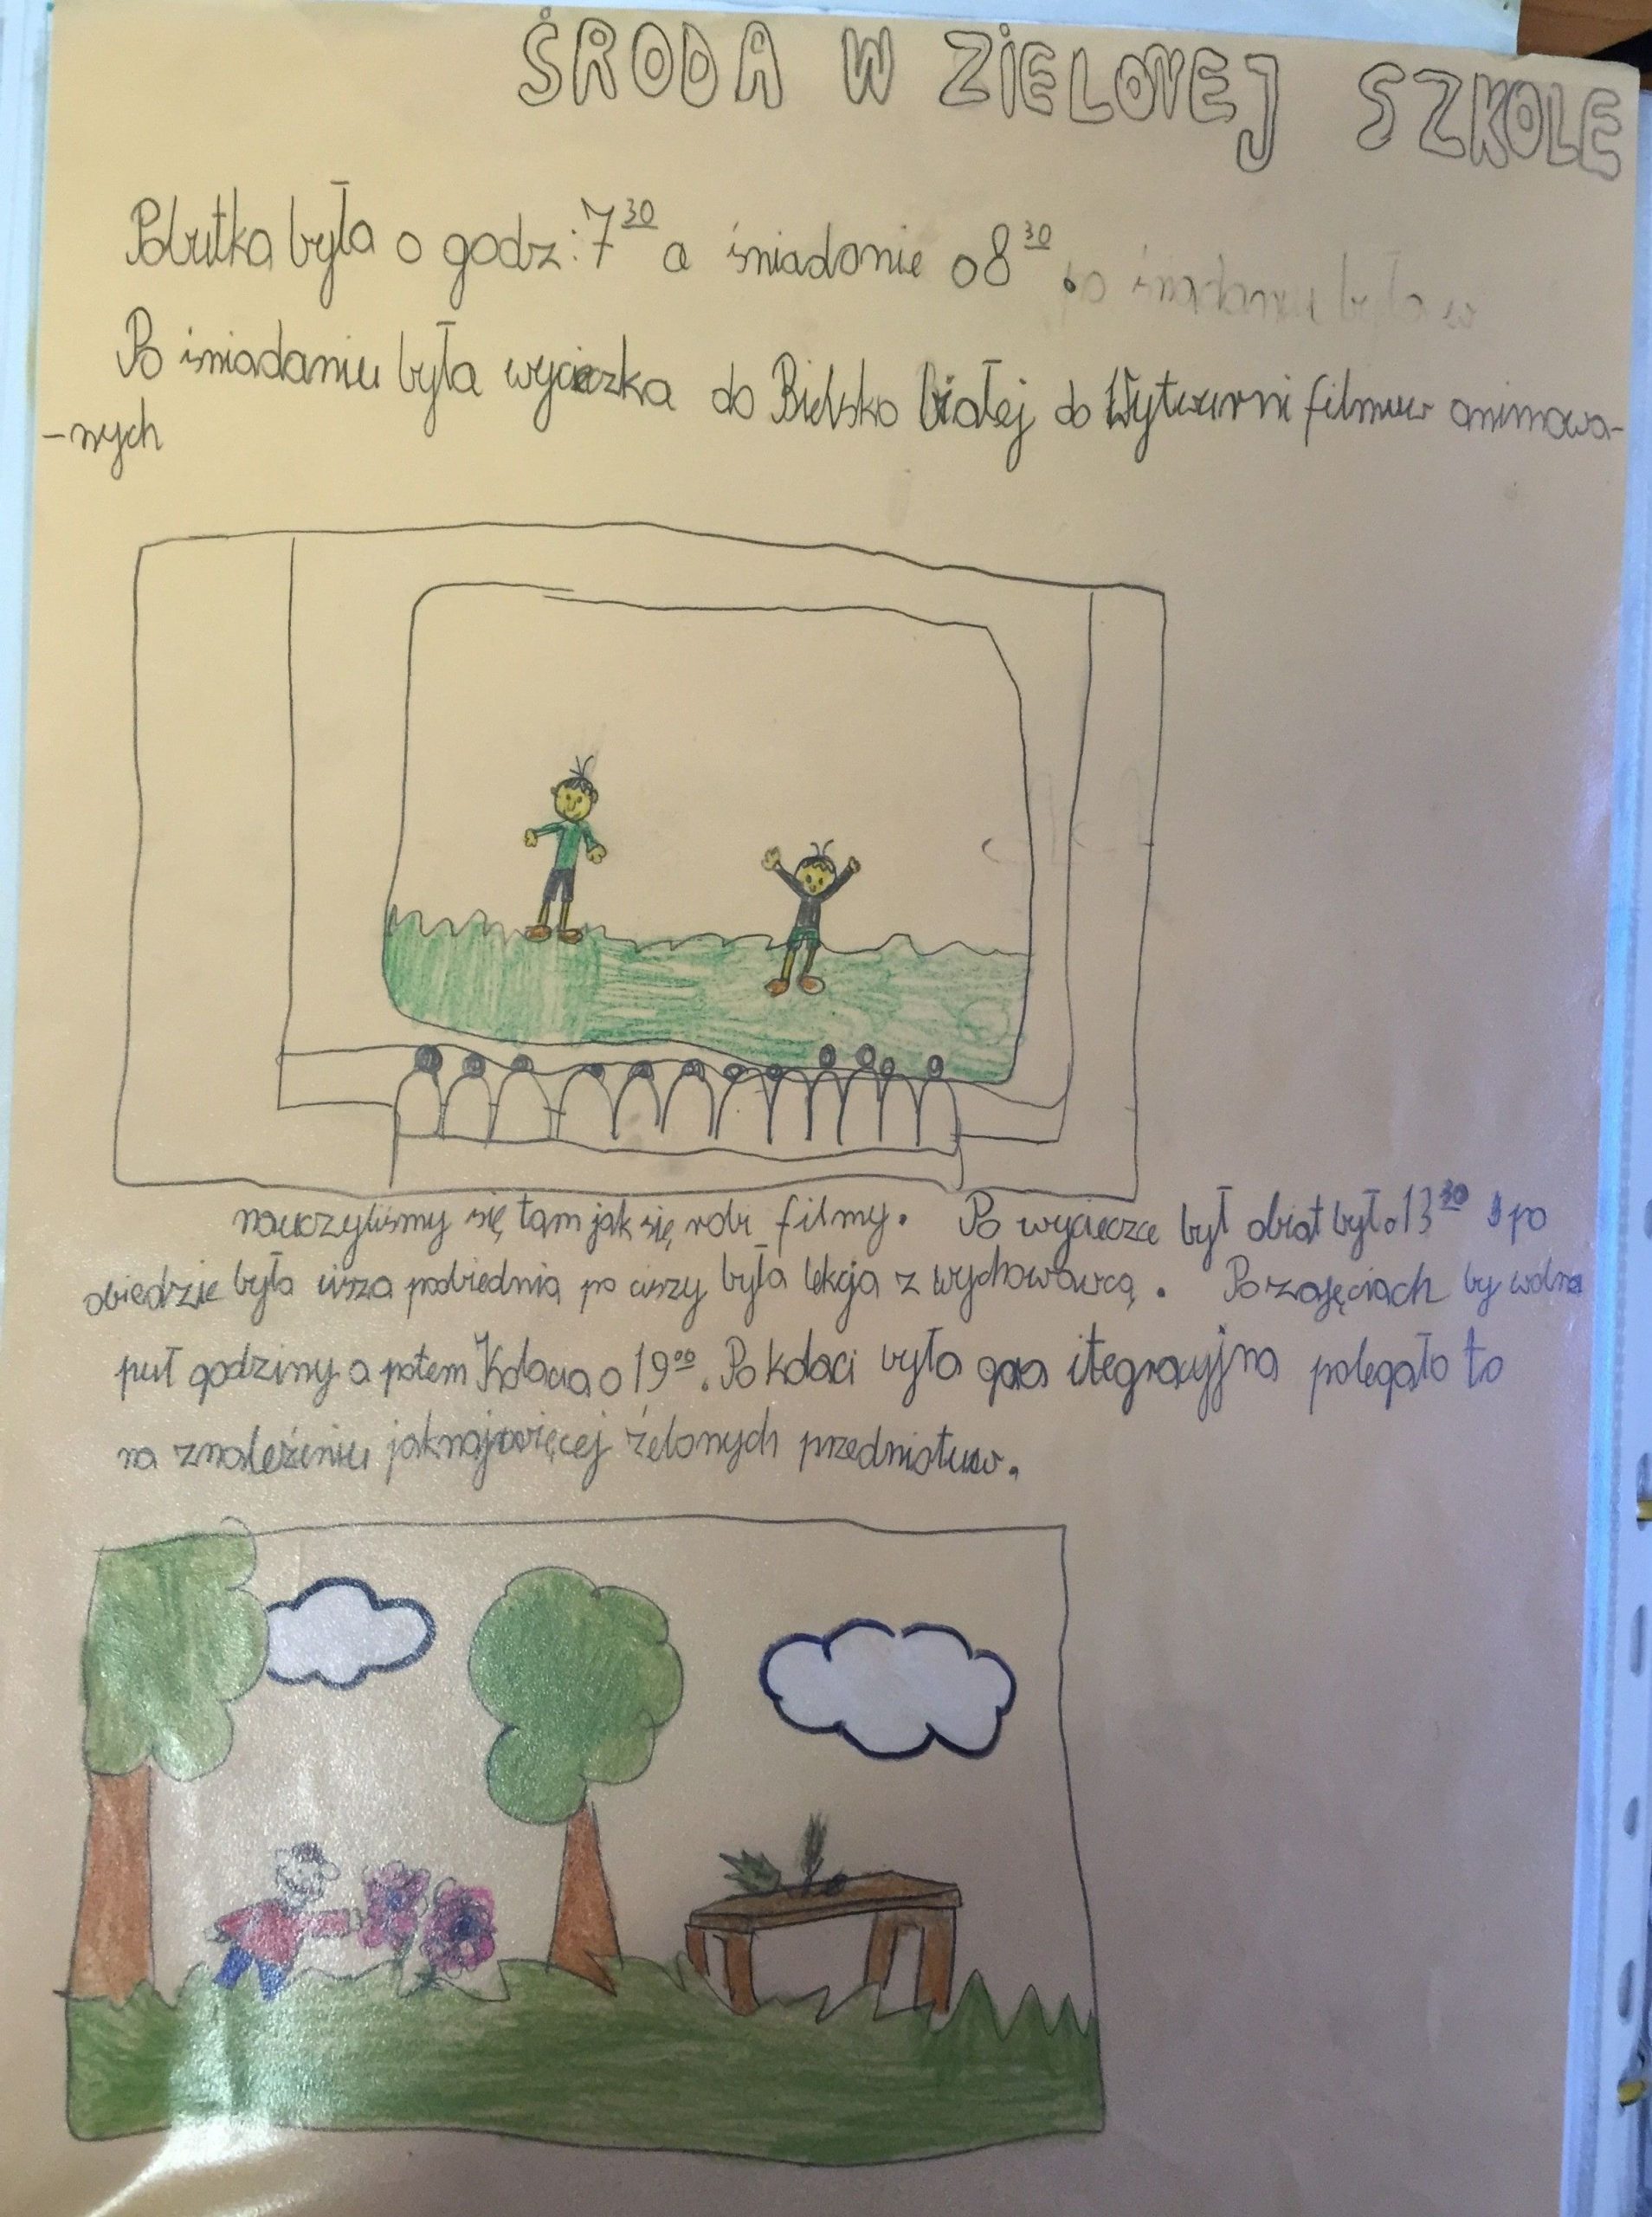 ŚRODA W ZIELONEJ SZKOLE
Pobutka była o godz: 7³⁰ a śniadanie o 8³⁰. po śniadaniu była w
Po śniadaniu była wycieczka do Bielsko białej do Wytwurni filmuw animowa-
-nych
nauczyliśmy się tam jak się robi filmy. Po wycieczce był obiat był o 13³⁰ po
obiedzie była cisza pobiednia po ciszy była lekcja z wychowawcą. Po zajęciach by wolna
puł godziny a potem Kolacia o 19⁰⁰. Po kolaci była gra itegracyjna polegało to
na znaleźieniu jaknajwięcej źelonych przedmiotuw.